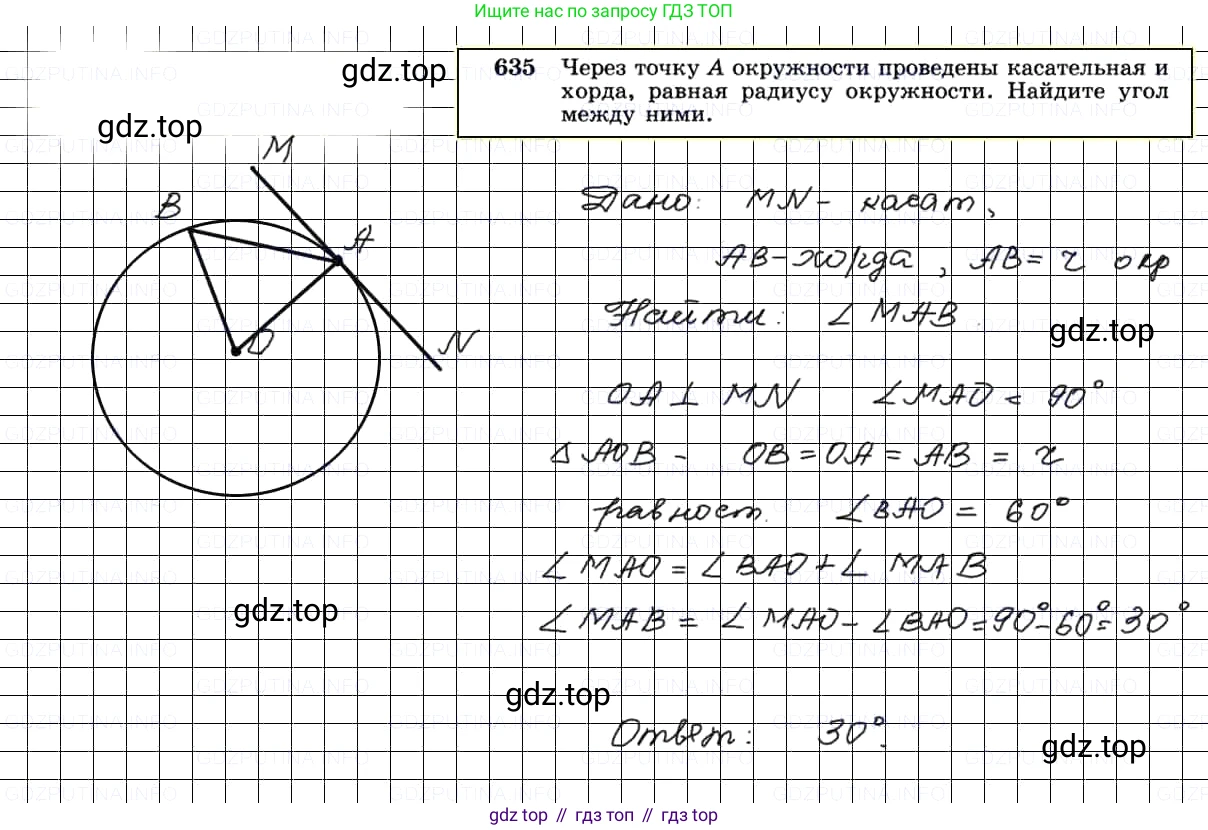 Ищите нас по запросу ГДЗ ТОП
gdz.top
635 Через точку A окружности проведены касательная и
хорда, равная радиусу окружности. Найдите угол
между ними.
gdz.top
M
B
A
O
N
Дано: MN - касат,
AB - хорда, AB = r окр
Найти: ∠ MAB.
gdz.top
OA ⊥ MN ∠MAO = 90°
△ AOB - OB = OA = AB = r
равност. ∠BAO = 60°
∠ MAO = ∠ BAO + ∠ MAB
∠ MAB = ∠ MAO - ∠BAO = 90° - 60° = 30°
gdz.top
gdz.top
Ответ: 30°.
gdz.top
gdz top // гдз топ // гдз top
GDZPUTINA.INFO